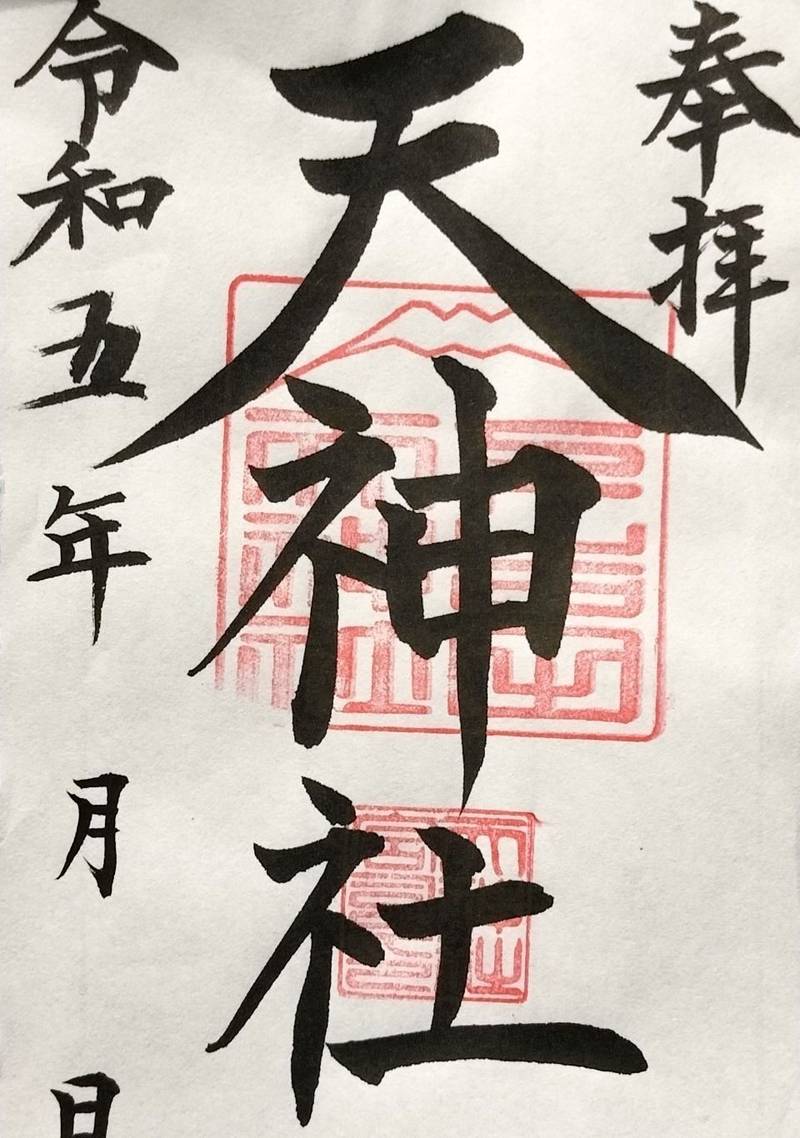 奉拝
天神社
令和五年 月 日